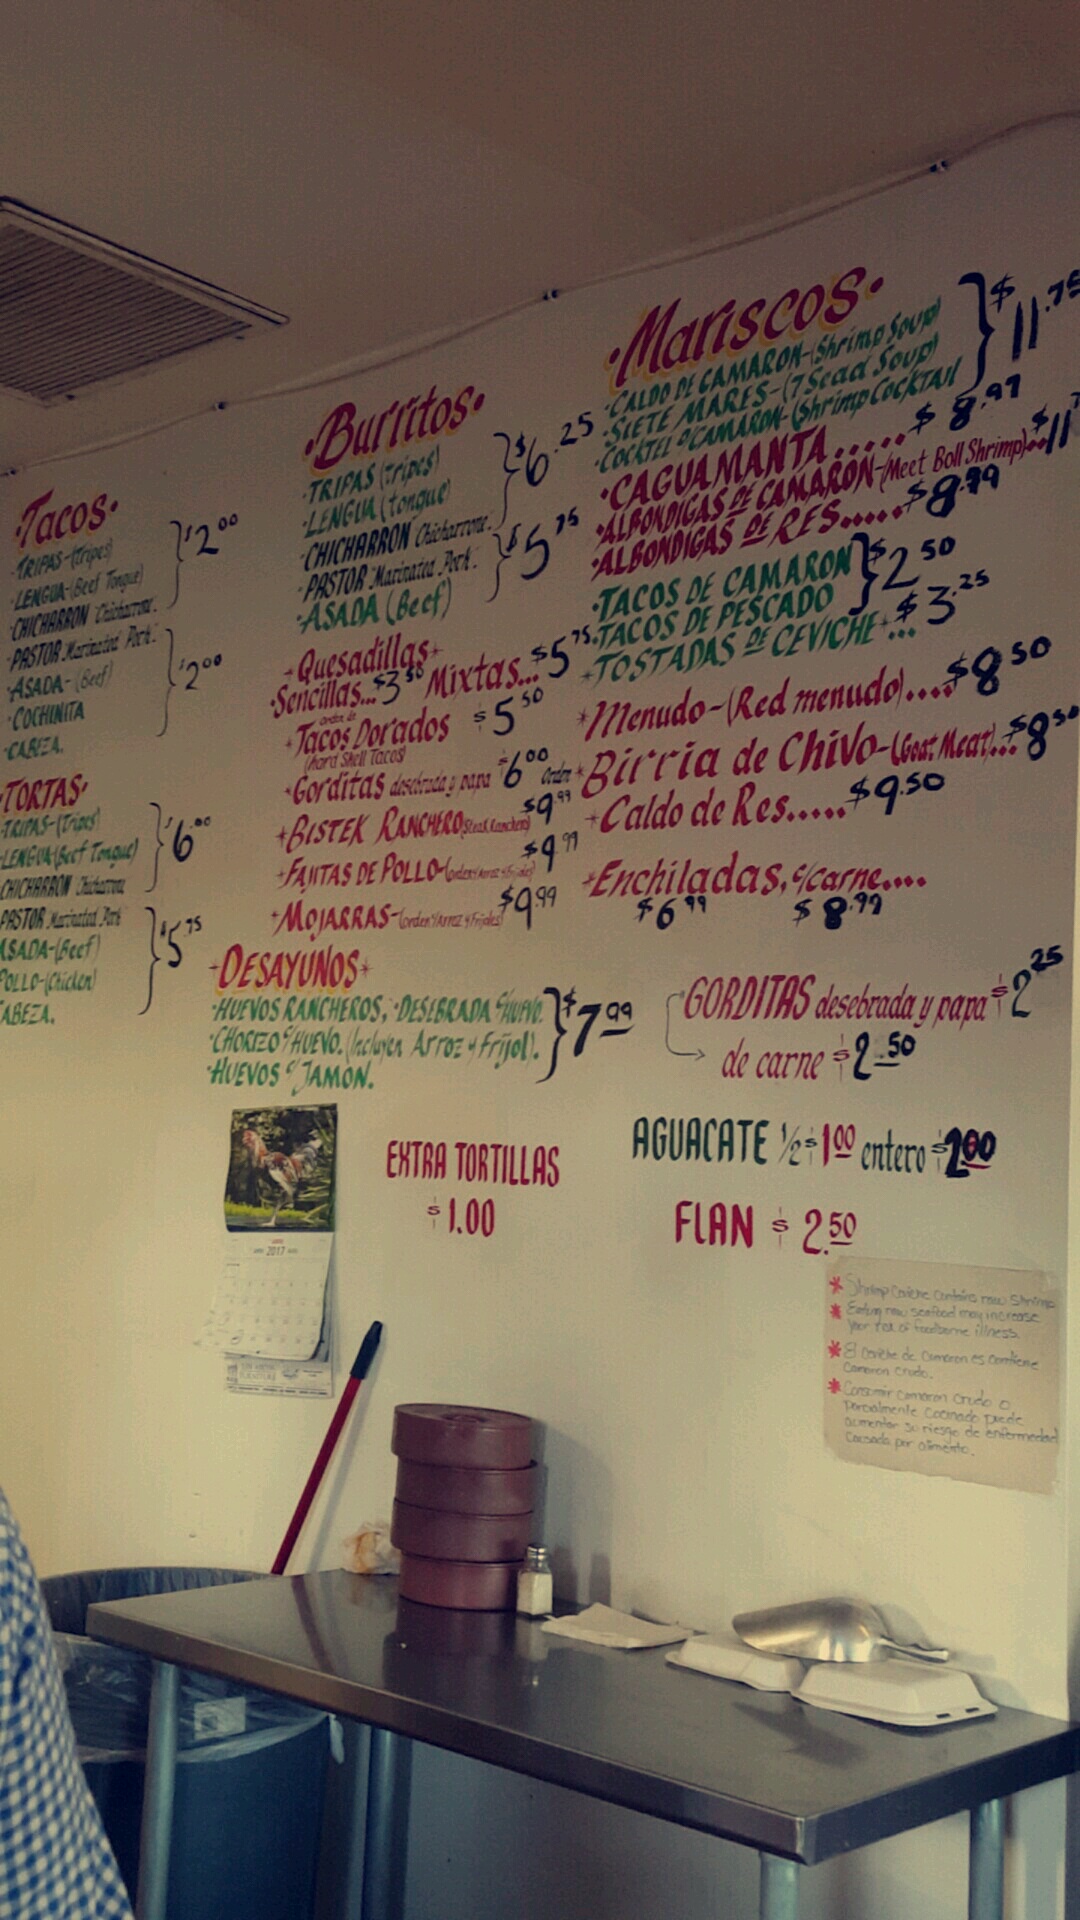 ·Tacos·
·TRIPAS-(Tripes)
·LENGUA-(Beef Tongue)
·CHICHARRON Chicharrone.
}$2.00
·PASTOR Marinated Pork.
·ASADA-(Beef)
·COCHINITA
·CABEZA.
}$2.00
TORTAS·
TRIPAS-(Tripes)
LENGUA-(Beef Tongue)
CHICHARRON Chicharrone
}$6.00
PASTOR Marinated Pork
ASADA-(Beef)
POLLO-(Chicken)
CABEZA.
}$5.75
·Burritos·
·TRIPAS (tripes)
·LENGUA (tongue)
}$6.25
·CHICHARRON Chicharrone.
·PASTOR Marinated Pork.
·ASADA (Beef)
}$5.75
*Quesadillas*
Sencillas...$3.50 Mixtas...$5.75
orden de
*Tacos Dorados $5.50
(Hard Shell Tacos)
*Gorditas desebrada y papa $6.00 Orden
*BISTEK RANCHERO (Steak Ranchero) $9.99
*FAJITAS DE POLLO-(orden c/Arroz y Frijoles) $9.99
*MOJARRAS-(orden c/Arroz y Frijoles) $9.99
·Mariscos·
·CALDO DE CAMARON-(Shrimp Soup)
·SIETE MARES-(7 Sead Soup)
·COCKTEL D'CAMARON-(Shrimp Cocktail
}$11.75
·CAGUAMANTA.....$8.99
·ALBONDIGAS DE CAMARON-(Meet Boll Shrimp)...$11.7
·ALBONDIGAS DE RES.....$8.99
·TACOS DE CAMARON
·TACOS DE PESCADO
}$2.50
*TOSTADAS DE CEVICHE*...$3.25
*Menudo-(Red menudo)....$8.50
*Birria de Chivo-(Goat Meat)...$8.50
*Caldo de Res.....$9.50
*Enchiladas, c/carne....
$6.99 $8.99
*DESAYUNOS*
·HUEVOS RANCHEROS, ·DESEBRADA C/HUEVO.
·CHORIZO C/HUEVO. (Incluyen Arroz y Frijol).
·HUEVOS C/JAMON.
}$7.99
GORDITAS desebrada y papa $2.25
de carne $2.50
EXTRA TORTILLAS
$1.00
AGUACATE 1/2 $1.00 entero $2.00
FLAN $2.50
2017
* Shrimp Ceviche contains raw Shrimp
* Eating raw seafood may increase
your risk of foodborne illness.
* El ceviche de Camaron es contiene
Camaron crudo.
* Consumir camaron crudo o
parcialmente cocinado puede
aumentar su riesgo de enfermedad
causada por alimento.